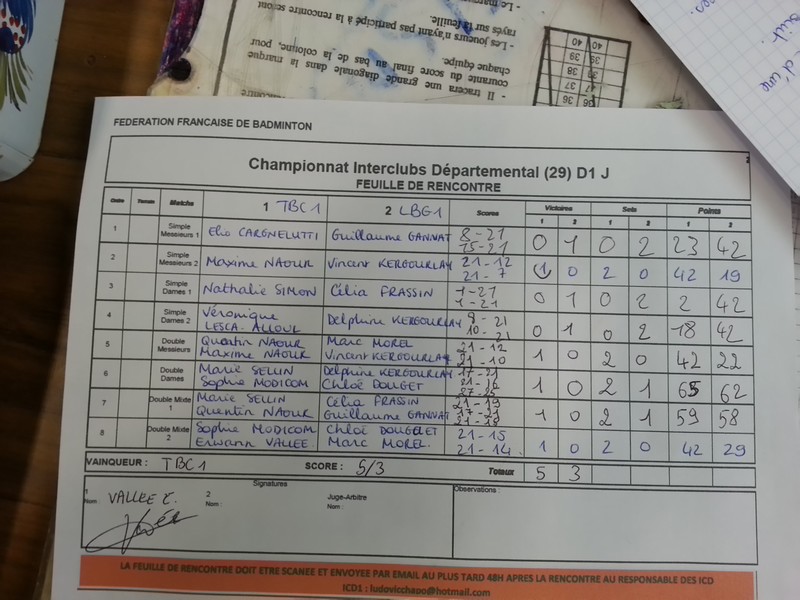 - Le
- Les joueurs n'ayant pas participé à la rencontre seront
rayés sur la feuille.
- Il tracera une grande diagonale dans la marque
courante du score final au bas de la colonne, pour
chaque équipe.
40 40
39
38
37
36
d'une
FEDERATION FRANCAISE DE BADMINTON
Championnat Interclubs Départemental (29) D1 J
FEUILLE DE RENCONTRE
Ordre Terrain Matchs 1 TBC1 2 LBG1 Scores Victoires Sets Points
1 2 1 2 1 2
1 Simple Messieurs 1 Elio CARGNELUTTI Guillaume GANNAT 8-21 15-21 0 1 0 2 23 42
2 Simple Messieurs 2 Maxime NAOUR Vincent KERGOURLAY 21-12 21-7 1 0 2 0 42 19
3 Simple Dames 1 Nathalie SIMON Célia FRASSIN 1-21 1-21 0 1 0 2 2 42
4 Simple Dames 2 Véronique LESCA.ALLOUL Delphine KERGOURLAY 8-21 10-21 0 1 0 2 18 42
5 Double Messieurs Quentin NAOUR Maxime NAOUR Marc MOREL Vincent KERGOURLAY 21-12 21-10 1 0 2 0 42 22
6 Double Dames Marie SELLIN Sophie MODICOM Delphine KERGOURLAY Chloé DOUGET 17-21 21-16 27-25 1 0 2 1 65 62
7 Double Mixte 1 Marie SELLIN Quentin NAOUR Célia FRASSIN Guillaume GANNAT 21-19 17-21 21-18 1 0 2 1 59 58
8 Double Mixte 2 Sophie MODICOM Erwann VALLEE. Chloé DOUGET Marc MOREL. 21-15 21-14. 1 0 2 0 42 29
VAINQUEUR : TBC1 SCORE : 5/3 Totaux 5 3
Signatures Observations :
1 Nom : VALLEE E. 2 Nom : Juge-Arbitre Nom :
LA FEUILLE DE RENCONTRE DOIT ETRE SCANEE ET ENVOYEE PAR EMAIL AU PLUS TARD 48H APRES LA RENCONTRE AU RESPONSABLE DES ICD
ICD1 : ludovicchapo@hotmail.com